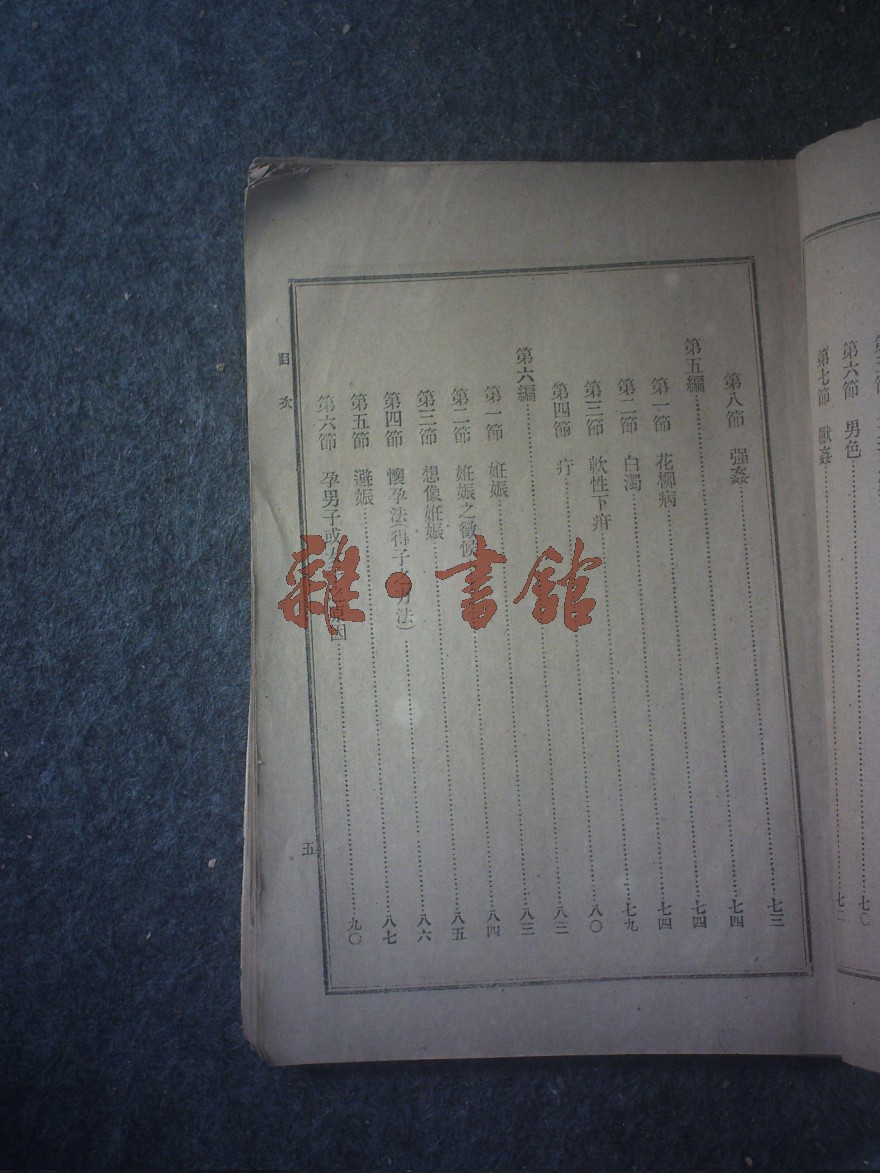 第六節 男色……七〇
第七節 獸姦……七
第八節 强姦……七三
第五編……七四
第一節 花柳病……七四
第二節 白濁……七四
第三節 軟性下疳……七九
第四節 疔……八〇
第六編……八三
第一節 姙娠……八三
第二節 姙娠之徵候……八四
第三節 想像姙娠……八五
第四節 懷孕法(得子之方法)……八六
第五節 避娠……八七
第六節 孕男子或女子之原因……九〇
目次
五
雜·書館